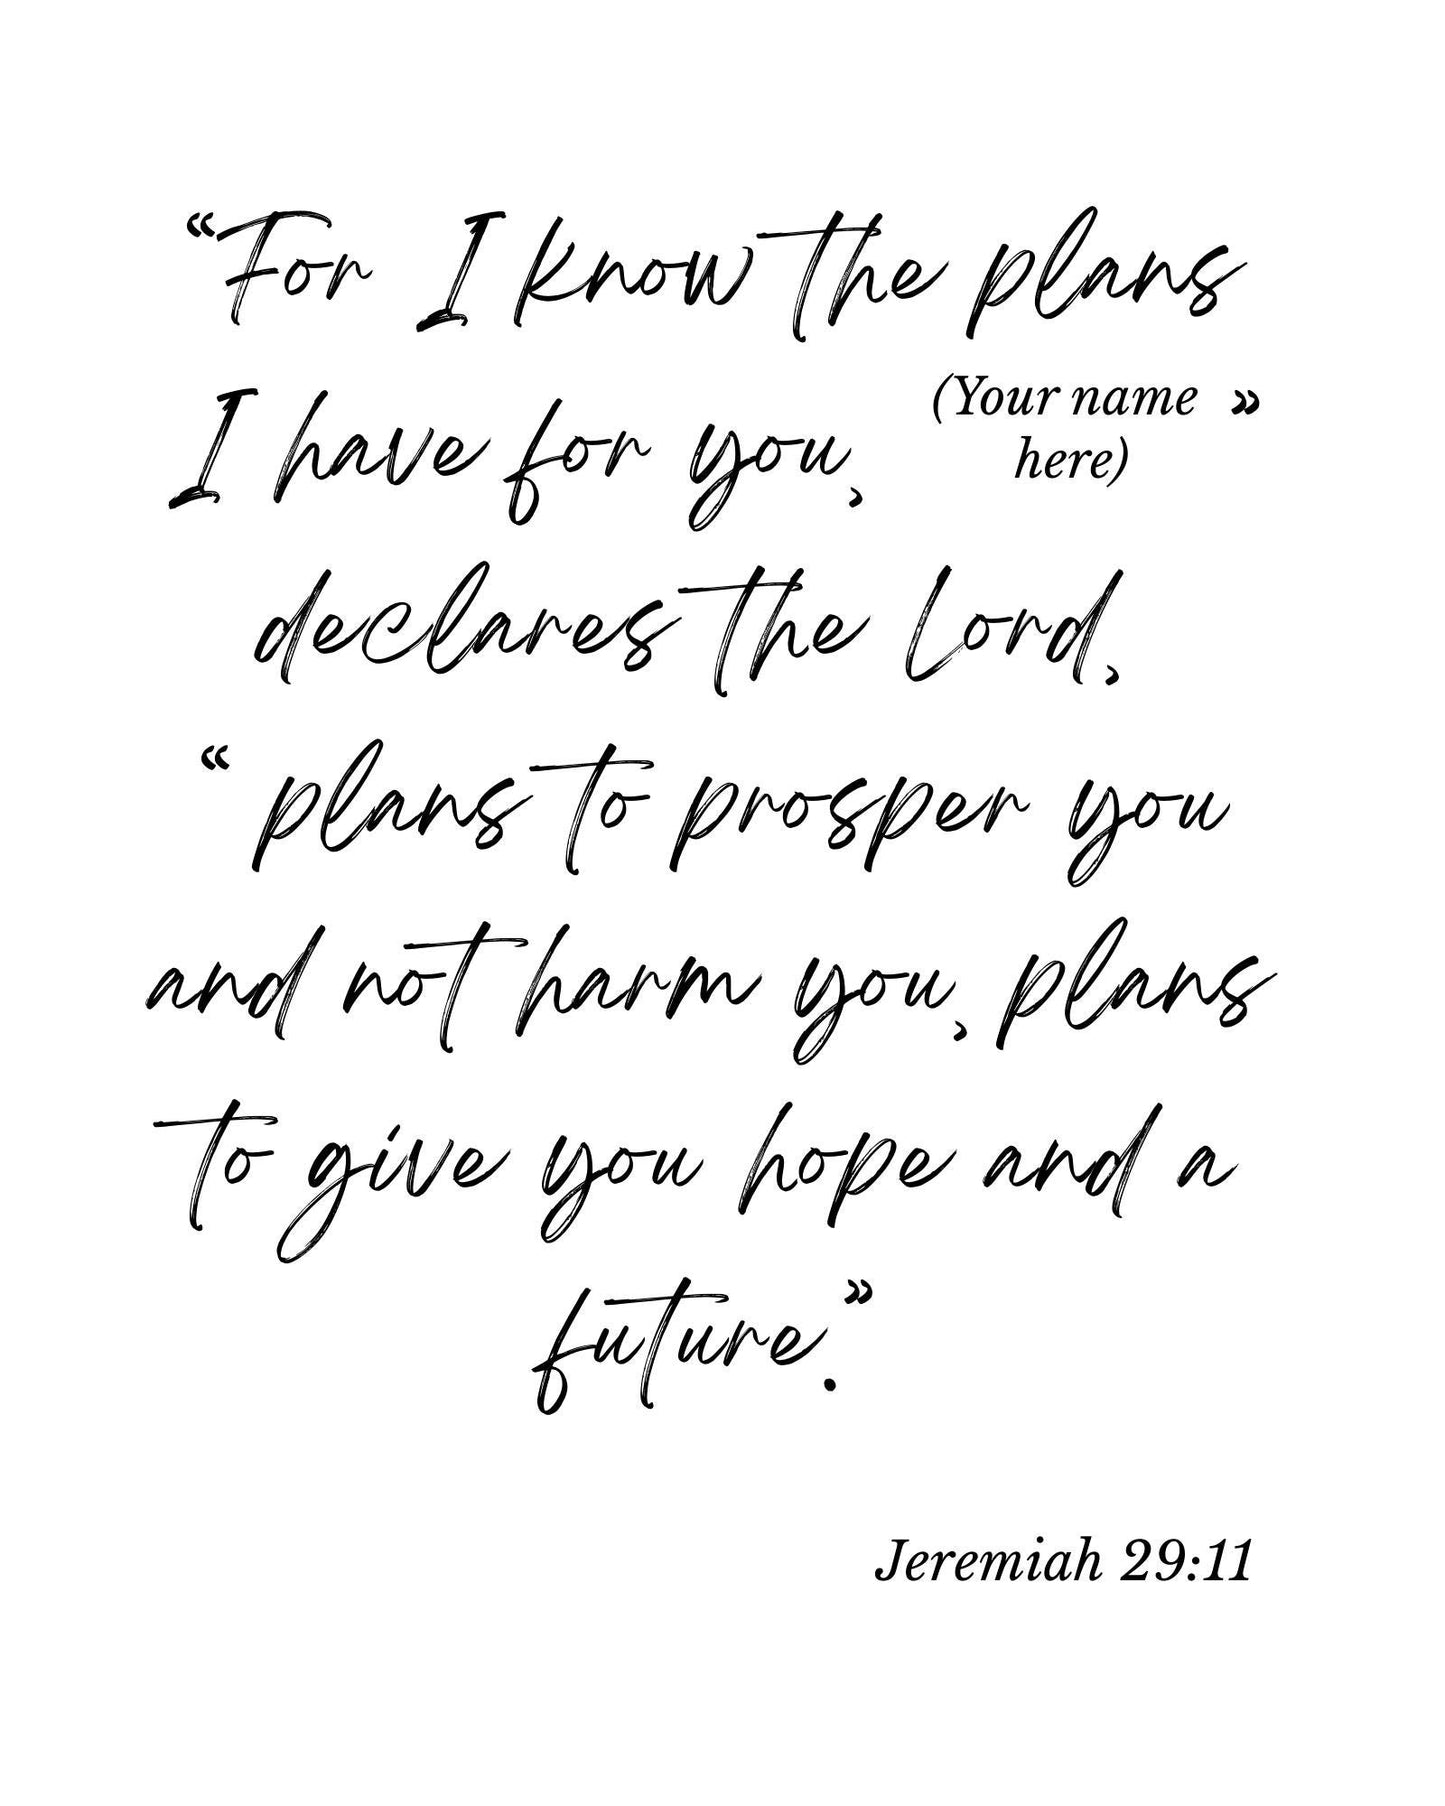 “For I know the plans
I have for you, (Your name here) ”
declares the Lord,
“ plans to prosper you
and not harm you, plans
to give you hope and a
future.”
Jeremiah 29:11